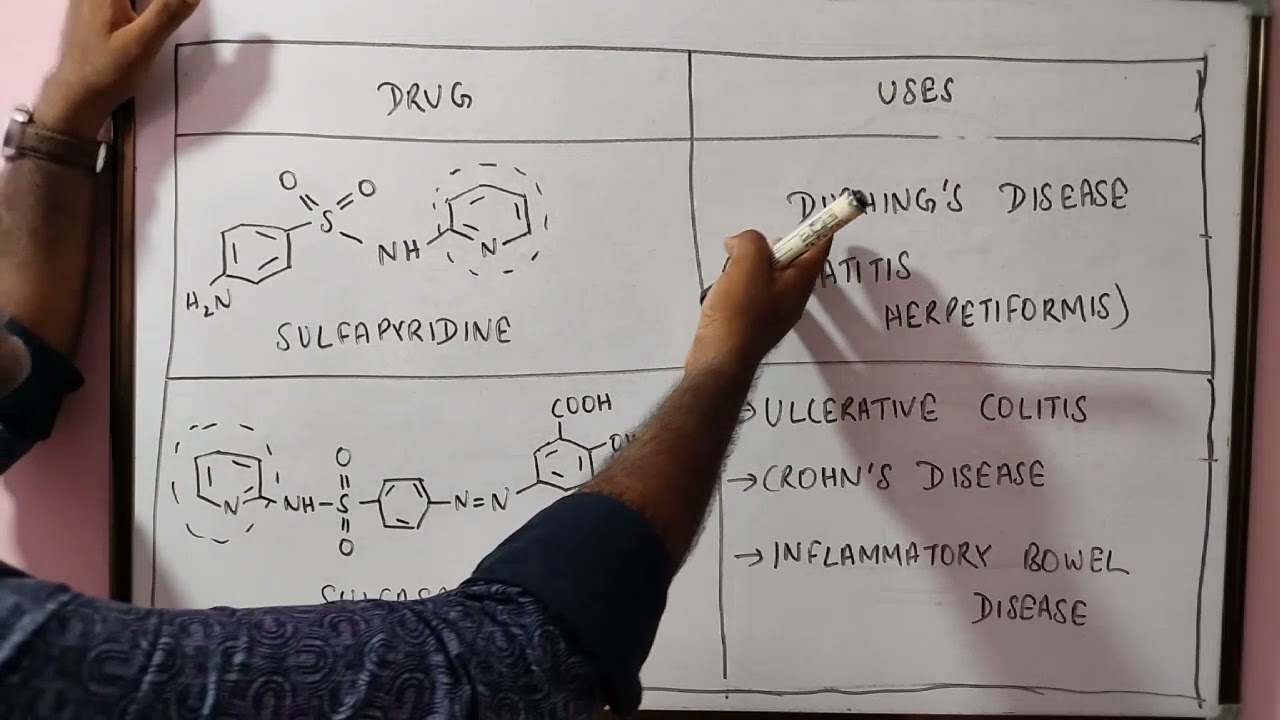 DRUG
USES
O O
S
NH
N
H₂N
SULFAPYRIDINE
DISEASE
HERPETIFORMIS)
COOH
O
N
NH-S
N=N
O
→ULCERATIVE COLITIS
→CROHN'S DISEASE
→INFLAMMATORY BOWEL
DISEASE